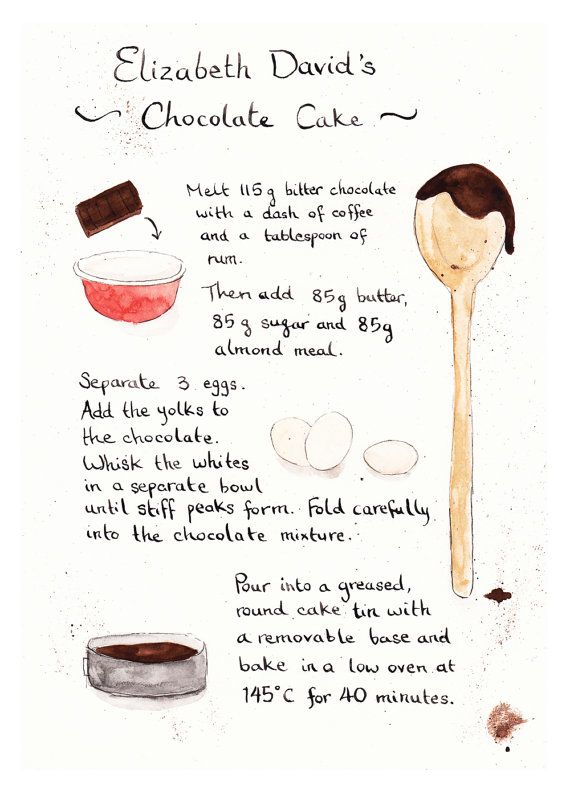 Elizabeth David's
~ Chocolate Cake ~
Melt 115g bitter chocolate
with a dash of coffee
and a tablespoon of
rum.
Then add 85g butter,
85g sugar and 85g
almond meal.
Separate 3 eggs.
Add the yolks to
the chocolate.
Whisk the whites
in a separate bowl
until stiff peaks form. Fold carefully
into the chocolate mixture.
Pour into a greased,
round cake tin with
a removable base and
bake in a low oven at
145°C for 40 minutes.